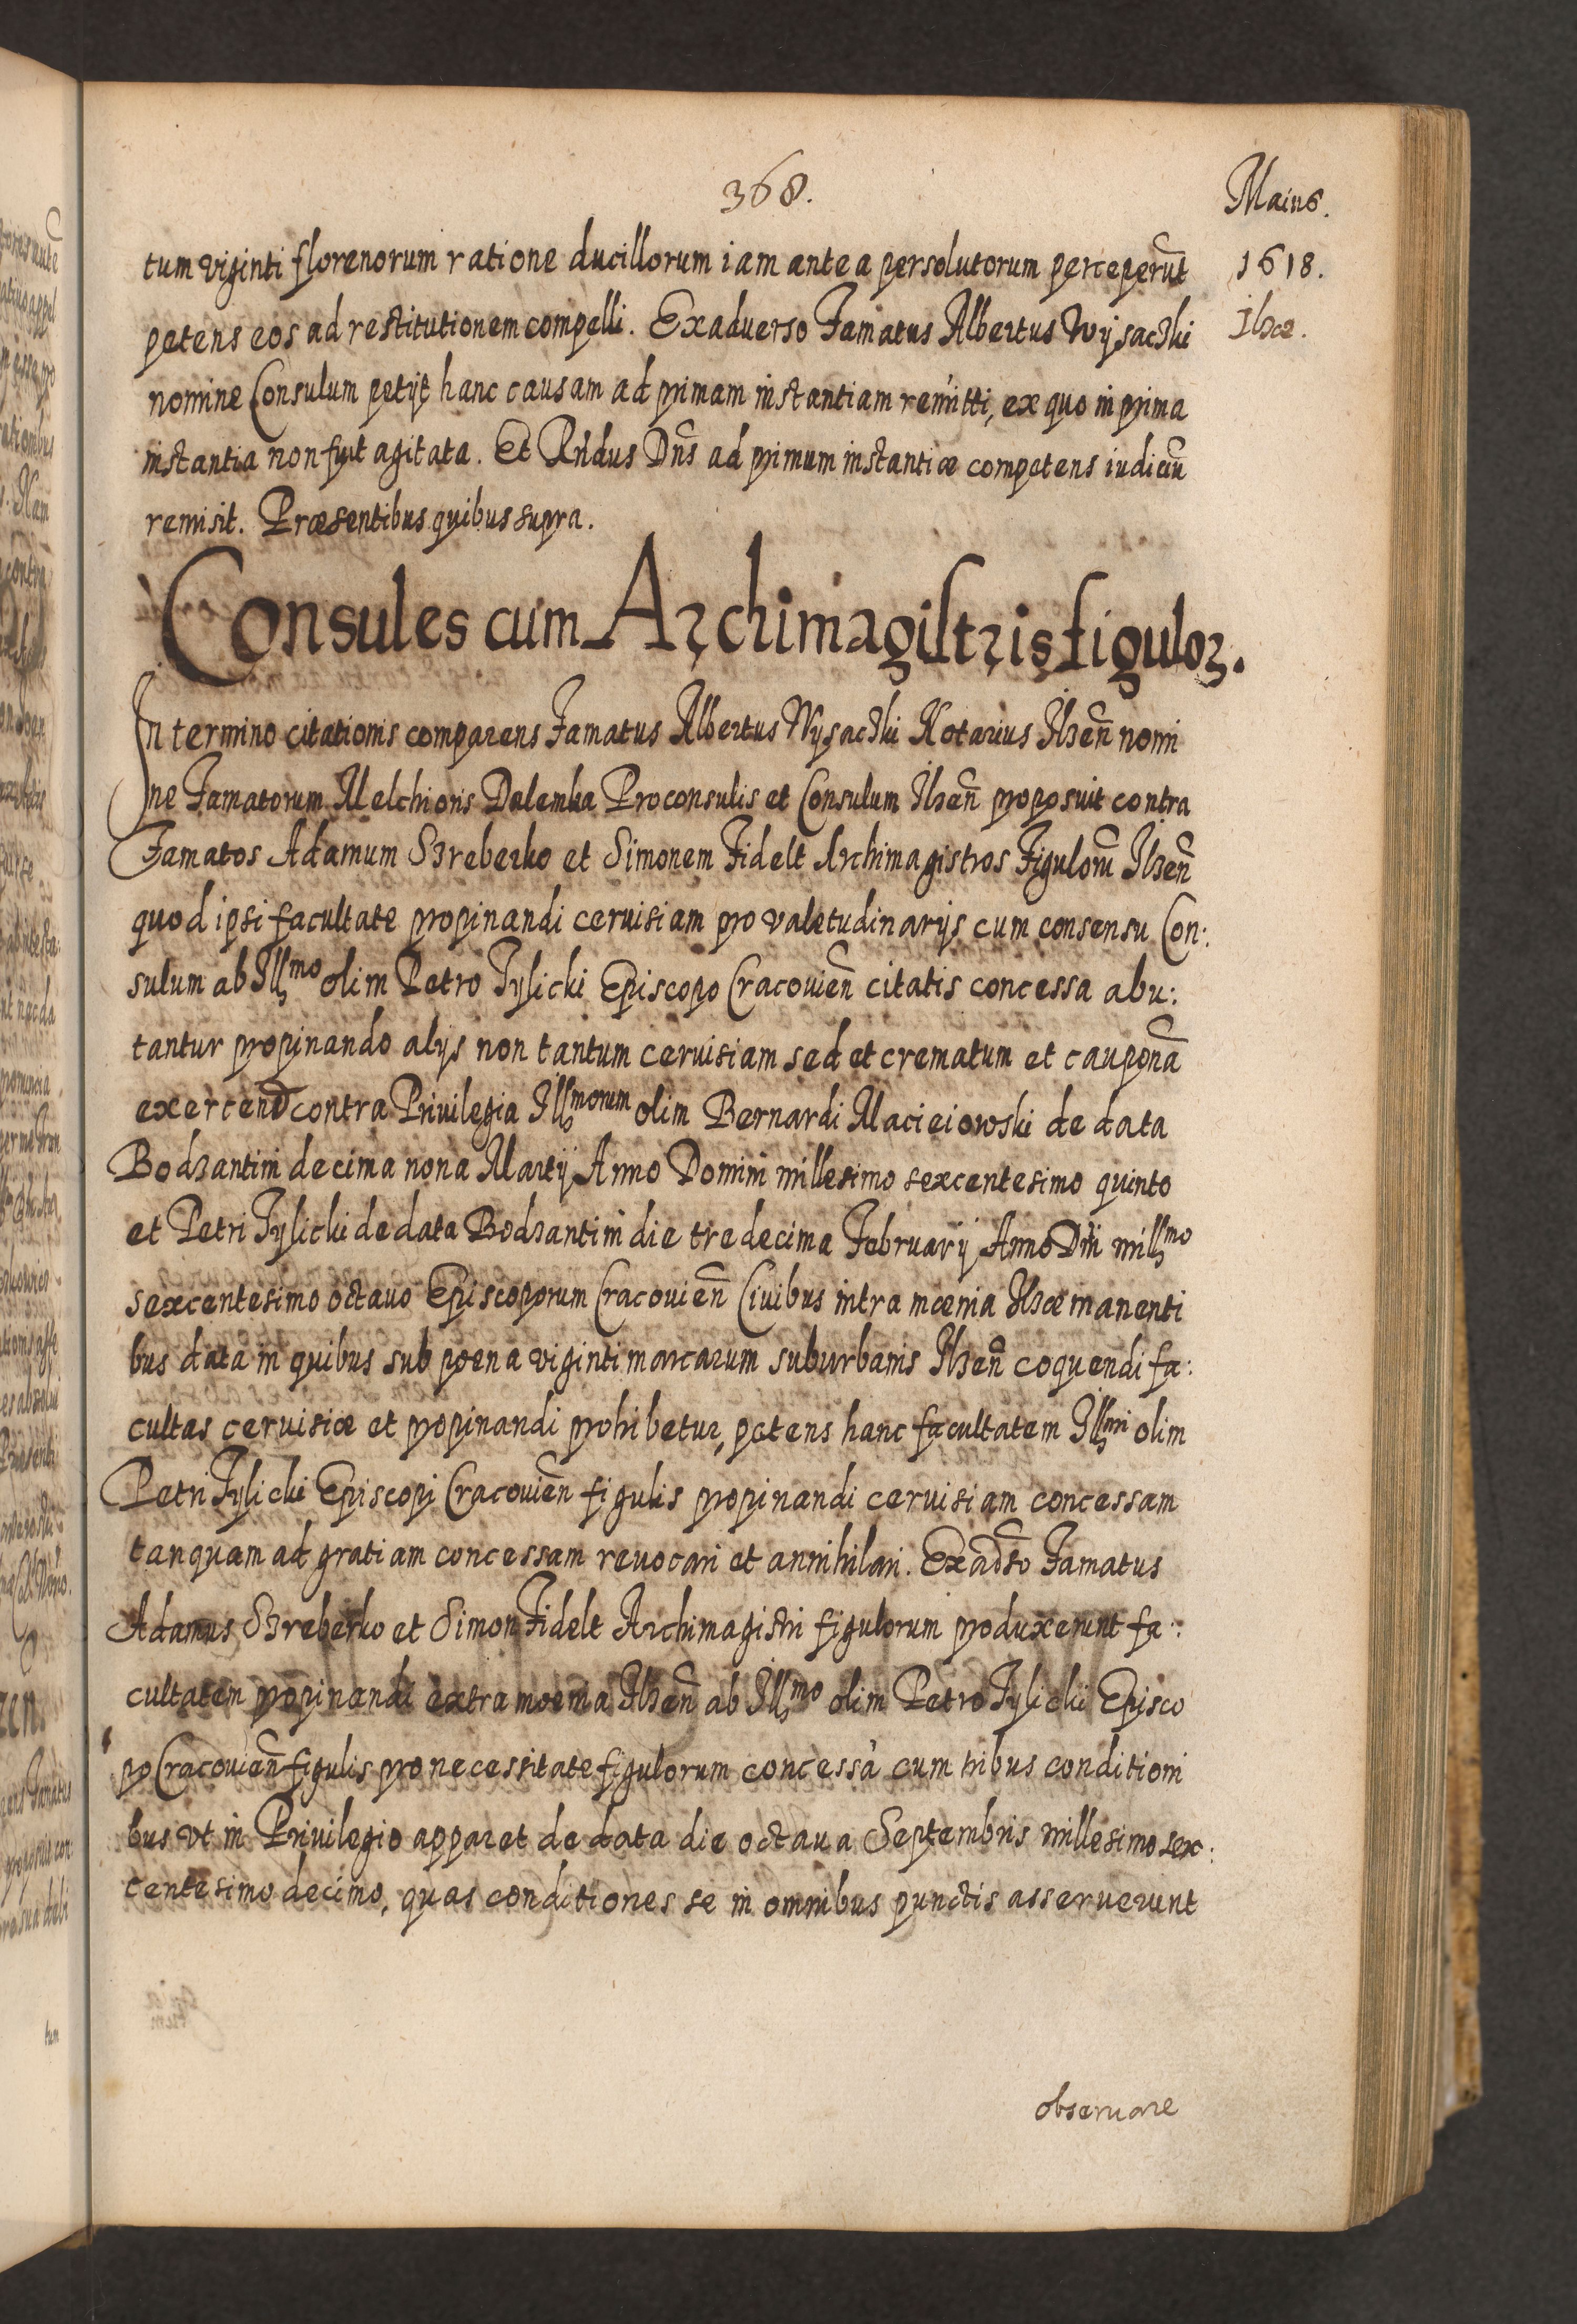 368.
Maius.
1618.
Ilzæ.
tum viginti florenorum ratione ducillorum iam antea persolutorum perceperūt
petens eos ad restitutionem compelli. Exaduerso Famatus Albertus Wysaczki
nomine Consulum petijt hanc causam ad primam instantiam remitti, ex quo in prima
instantia non fuit agitata. Et Rńdus Dn̄s ad primum instantiæ competens iudiciū
remisit. Præsentibus quibus supra.
Consules cum Archimagistris figuloꝝ.
In termino citationis comparens Famatus Albertus Wysaczki Notarius Ilzen̄ nomi
ne Famatorum Melchioris Dalemka Proconsulis et Consulum Ilzen̄ proposuit contra
Famatos Adamum Szreberko et Simonem Fidelt Archimagistros Figulorū Ilzen̄
quod ipsi facultate propinandi ceruisiam pro valetudinarijs cum consensu Con:
sulum ab Illmo olim Petro Tylicki Episcopo Cracouien̄ citatis concessa abu:
tantur propinando alijs non tantum ceruisiam sed et crematum et cauponā
exercend̄ contra Priuilegia Illmorum olim Bernardi Macieiowski de data
Bodzantini decima nona Martij Anno Domini millesimo sexcentesimo quinto
et Petri Tylicki de data Bodzantini die tredecima Februarij Anno Dni millmo
sexcentesimo octauo Episcoporum Cracouien̄ Ciuibus intra mœnia Ilzæ manenti
bus data in quibus sub poena viginti marcarum suburbanis Ilzen̄ coquendi fa:
cultas ceruisiæ et propinandi prohibetur, petens hanc facultatem Illmi olim
Petri Tylicki Episcopi Cracouien̄ figulis propinandi ceruisiam concessam
tanquam ad gratiam concessam reuocari et annihilari. Exad̄so Famatus
Adamus Szreberko et Simon Fidelt Archimagistri figulorum produxerunt fa:
cultatem propinandi extra moenia Ilzen̄ ab Illmo olim Petro Tylicki Episco
po Cracouien̄ figulis pro necessitate figulorum concessā cum tribus conditioni
bus vt in Priuilegio apparet de data die octaua Septembris millesimo sex:
centesimo decimo, quas conditiones se in omnibus punctis asseruerunt
obseruare